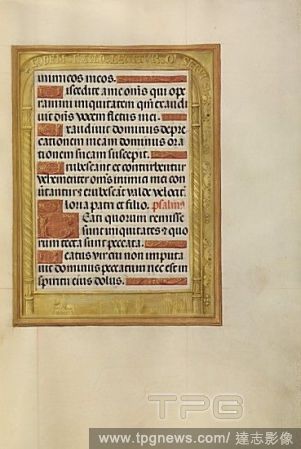 inimicos meos.
Discedite a me om̄s qui ope
ramini iniquitatem qm̄ exaudi
uit dn̄s vocem fletus mei.
Exaudiuit dominus depre
cationem meam dominus ora
tionem meam suscepit.
Erubescant et conturbentur
vehementer om̄s inimici mei con
uertantur et erubescāt valde velociť.
Gloria patri et filio. psalmꝰ
Beati quorum remisse
sunt iniquitates et quo
rum tecta sunt peccata.
Beatus vir cui non imputa
uit dominus peccatum nec est in
spiritu eius dolus.
TPG
www.tpgnews.com/ 達志影像